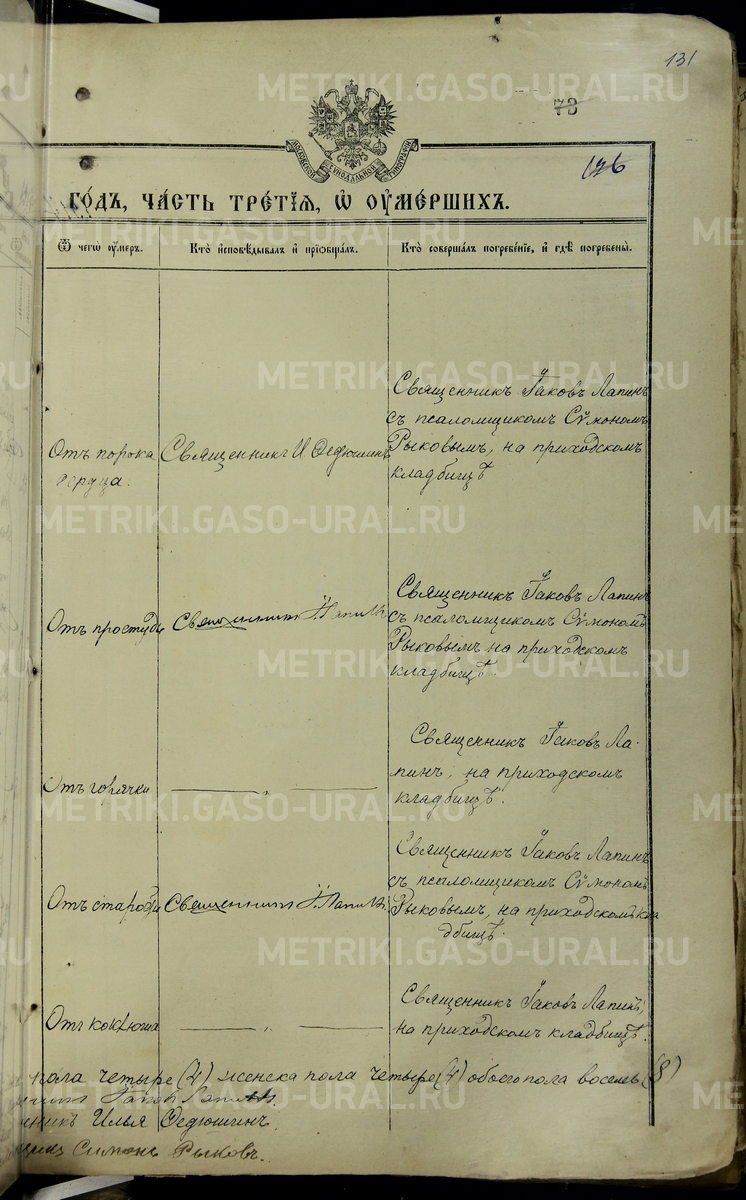 131
78
126
МОСКОВСКОЙ СѴНОДАЛЬНОЙ ТИПОГРАФІИ
ГО́ДЪ, ЧА́СТЬ ТРЕ́ТІѦ, Ѡ҆ ОУ҆МЕ́РШИХЪ.
Ѿ чегѡ̀ оу҆́меръ.
Кто̀ и҆сповѣ́дывалъ и҆ прїѻбща́лъ.
Кто̀ соверша́лъ погребе́нїе, и҆ гдѣ̀ погребены̀.
Отъ порока
сердца.
Священникъ И. Ѳедюшинъ
Священникъ Іаковъ Лапинъ
съ псаломщикомъ Сѵмономъ
Рыковымъ, на приходскомъ
кладбищѣ
Отъ простуды
Священникъ І. Лапинъ
Священникъ Іаковъ Лапинъ
съ псаломщикомъ Сѵмономъ
Рыковымъ на приходскомъ
кладбищѣ.
Отъ горячки
— „ —
Священникъ Іаковъ Ла-
пинъ, на приходскомъ
кладбищѣ.
Отъ старости
Священникъ І. Лапинъ
Священникъ Іаковъ Лапинъ
съ псаломщикомъ Сѵмономъ
Рыковымъ, на приходскомъ кла
дбищѣ.
Отъ коклюша
— „ —
Священникъ Іаковъ Лапинъ,
на приходскомъ кладбищѣ.
пола четыре (4) женска пола четыре (4) обоего пола восемь (8)
Іаковъ Лапинъ
нникъ Илья Ѳедюшинъ.
щикъ Симонъ Рыковъ.
METRIKI.GASO-URAL.RU